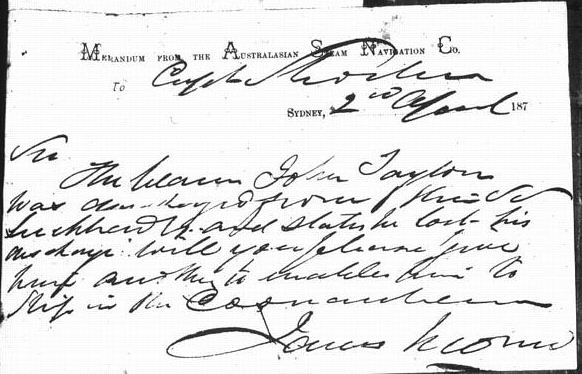 MEMORANDUM FROM THE AUSTRALASIAN STEAM NAVIGATION CO.
To Capt
SYDNEY, 2nd April 187
Sir
The bearer John Taylor
was discharged from the SS
and states he lost his
discharge will you please give
him another to enable him to
Ship in the
James